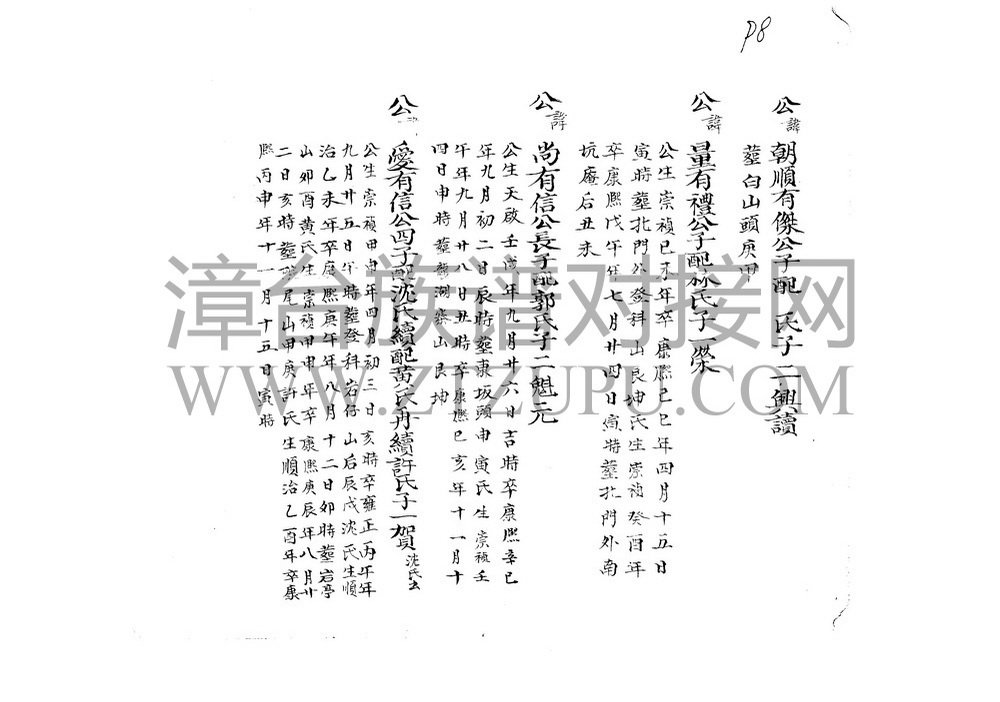 P8
公諱朝順有傑公子配 氏子二興讀
塟白山頭庚甲
公諱量有禮公子配林氏子一榮
公生崇禎己未年卒康熙己巳年四月十五日
寅時塟北門外登科山艮坤氏生崇禎癸酉年
卒康熙戊午年七月廿四日寅時塟北門外南
坑庵后丑未
公諱尚有信公長子配郭氏子二魁元
公生天啟壬戌年九月廿六日吉時卒康熙辛巳
年九月初二日辰時塟東坂頭申寅氏生崇禎壬
午年九月廿八日丑時卒康熙己亥年十一月十
四日申時塟 湖寨山艮坤
公 愛有信公四子配沈氏續配黃氏再續許氏子一賀 沈氏去
公生崇禎甲申年四月初三日亥時卒雍正丙午年
九月廿五日午時塟登科岩仔山后辰戌沈氏生順
治乙未年卒康熙庚午年八月十二日卯時塟岩亭
山卯酉黃氏生崇禎甲申年卒康熙庚辰年八月廿
二日亥時塟 尾山甲庚許氏生順治乙酉年卒康
熙丙申年十一月十五日寅時
漳台族谱对接网
WWW.ZTZUPU.COM